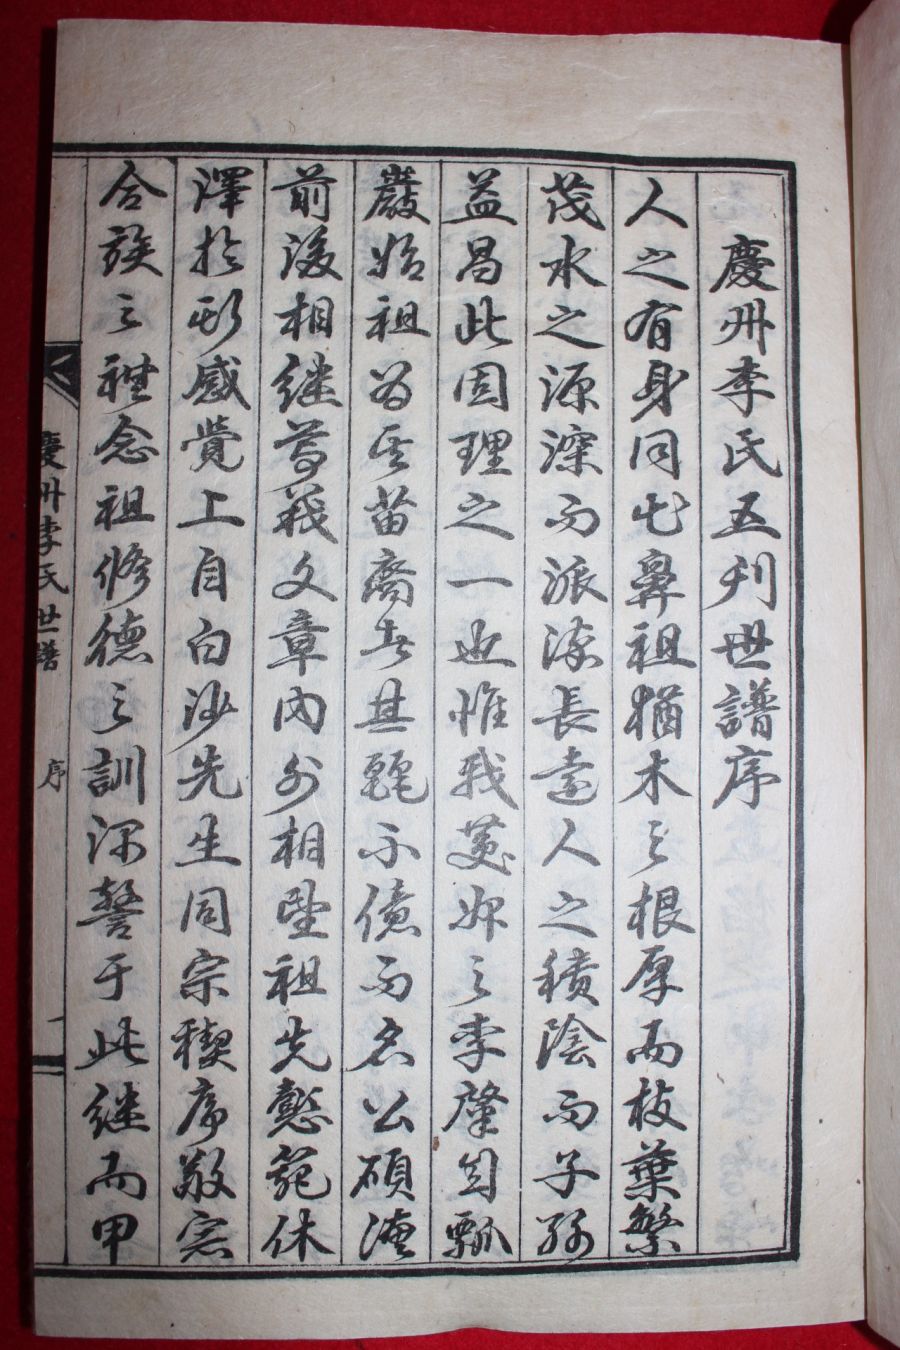 慶州李氏五刋世譜序
人之有身同出鼻祖猶木之根厚而枝葉繁
茂水之源深而派流長遠人之積陰而子孫
益昌此固理之一也惟我慶州之李肇自瓢
巖始祖爲其苗裔者其麗不億而名公碩
前後相繼文章內外相望祖先懿範休
澤於形感覺上自白沙先生同宗稧序敬宗
合族之禮念祖修德之訓深警于此继而甲
慶州李氏世譜 序 一